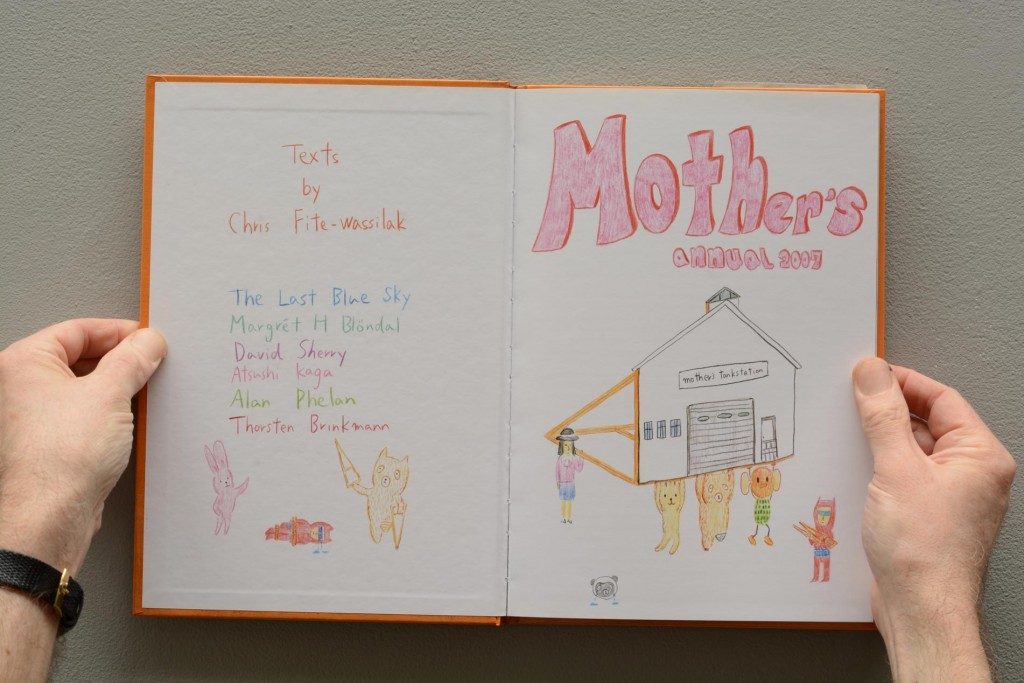 Texts
by
Chris Fite-wassilak
The Last Blue Sky
Margrét H Blöndal
David Sherry
Atsushi Kaga
Alan Phelan
Thorsten Brinkmann
Mother's
annual 2007
mother's tankstation